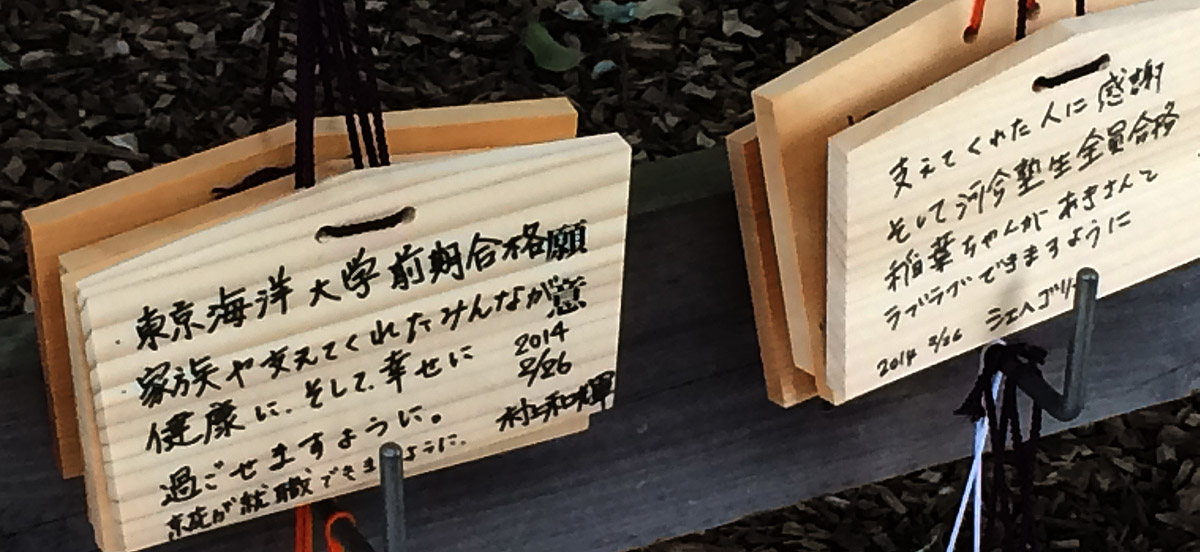 東京海洋大学前期合格願
家族や支えてくれたみんなが
健康に、そして幸せに
過ごせますように。
就職できますように。
2014
2/26
支えてくれた人に感謝
そして河合塾生全員合格
稲葉ちゃんがあきさんと
ラブラブできますように
2014 2/26